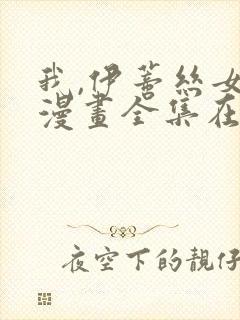 我,伊蒂丝女
漫畫全集在
夜空下的靓仔